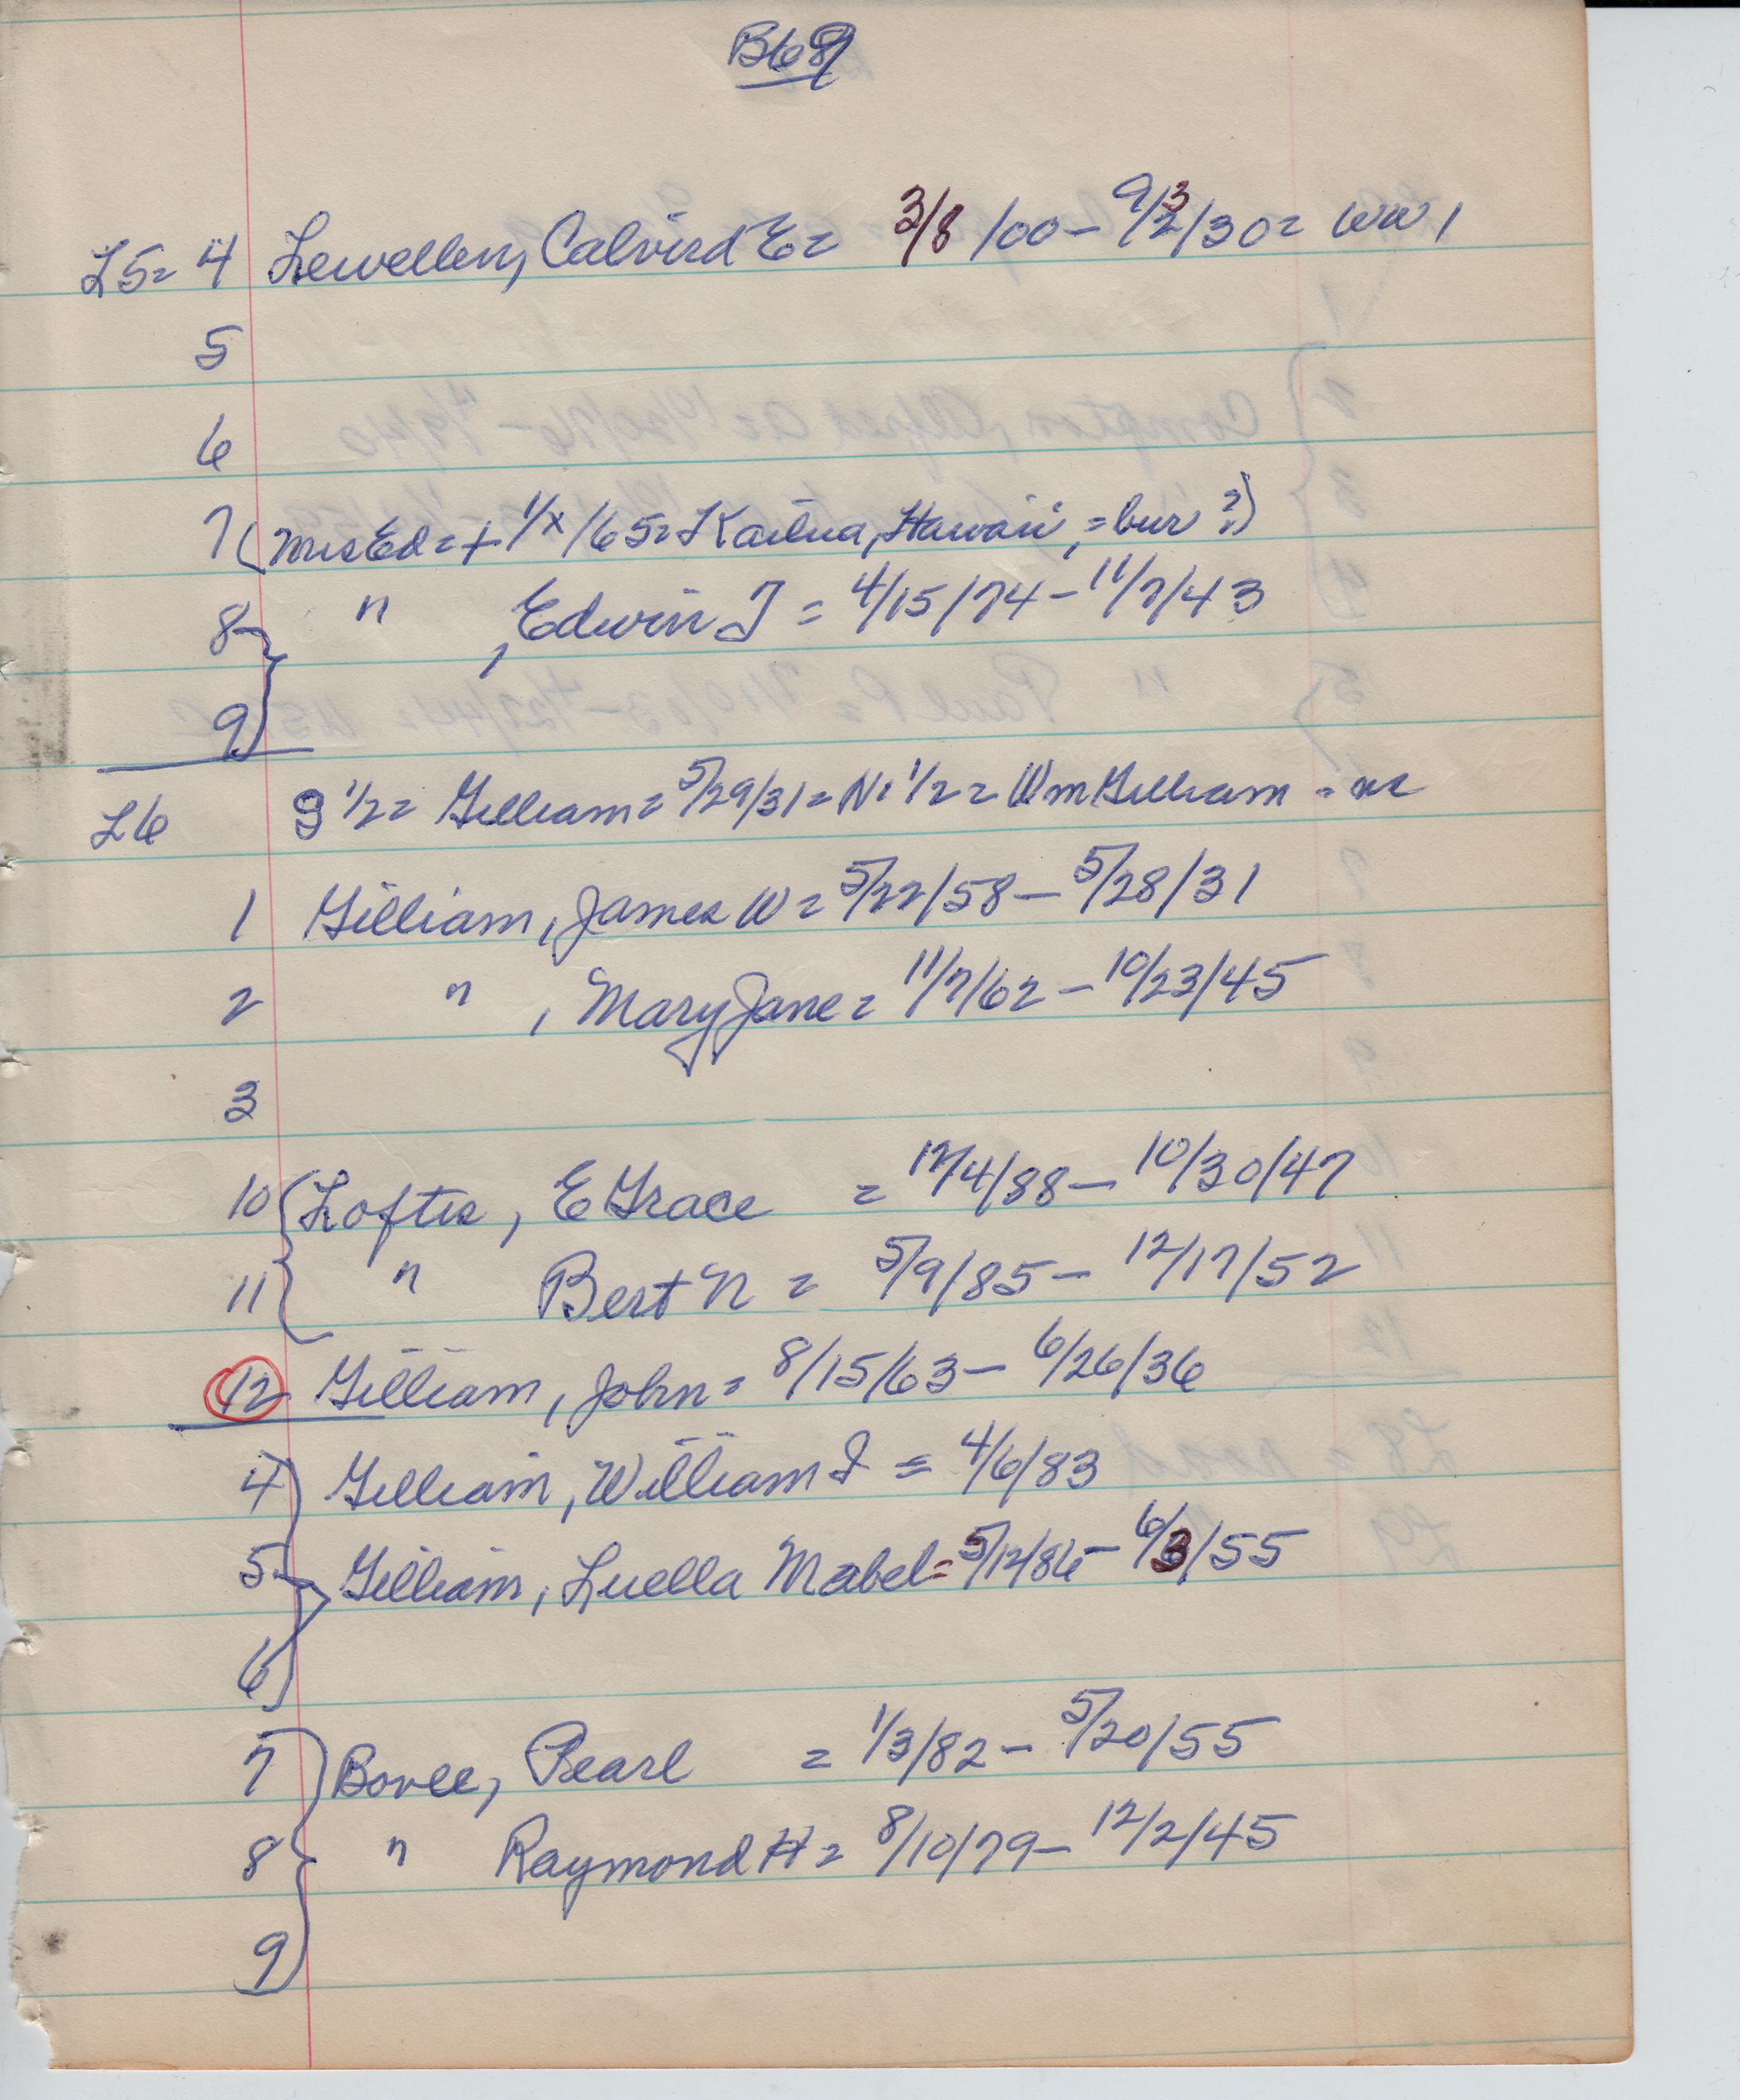 B69
L5= 4 Lewellen, Calvird E= 3/8/100 - 9/3/30= WW1
5
6
7 (Mrs Ed = + 1/x/65= Kailua, Hawaii, = bur ?)
8 " , Edwin J = 4/15/74 - 11/7/43
9
L6 S 1/2= Gilliam= 5/29/31= N 1/2= Wm Gilliam -
1 Gilliam, James W= 5/22/58 - 5/28/31
2 " , Mary Jane= 11/7/62 - 10/23/45
3
10 Loftis, E Grace = 12/4/88 - 10/30/47
11 " Bert N = 5/9/85 - 12/17/52
12 Gilliam, John= 8/15/63 - 6/26/36
4 Gilliam, William I = 4/6/83
5 Gilliam, Luella Mabel= 5/12/86 - 6/3/55
6
7 Bovee, Pearl = 1/3/82 - 5/20/55
8 " Raymond H= 8/10/79 - 12/2/45
9